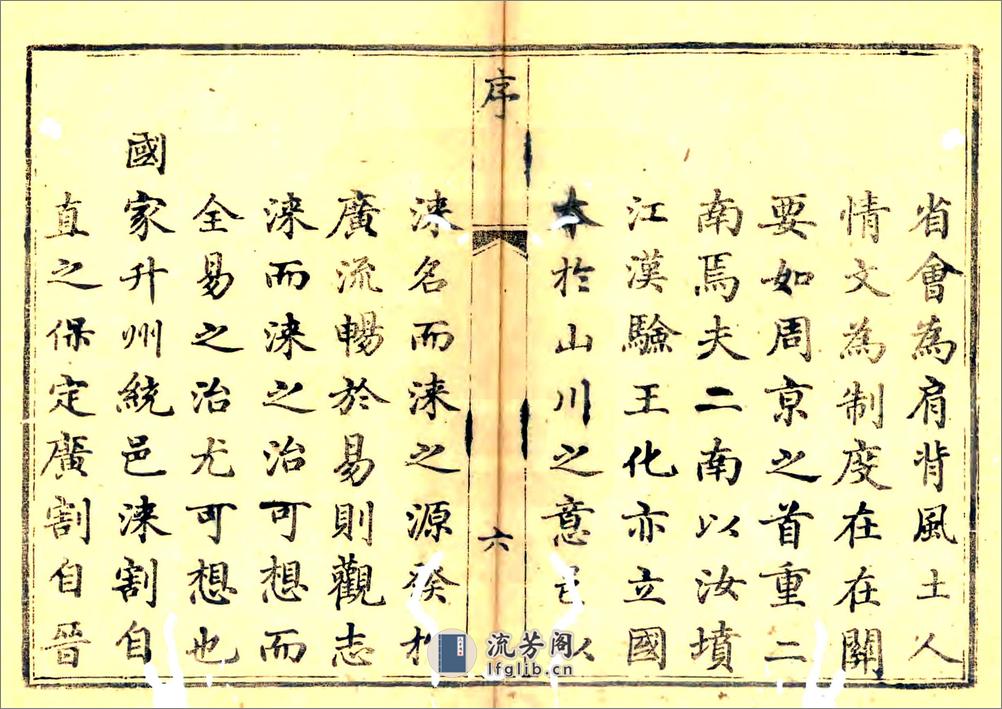 省會為肩背風土人
情文為制度在在關
要如周京之首重二
南焉夫二南以汝墳
江漢驗王化亦立國
本於山川之意邑以
序
六
淶名而淶之源發於
廣流暢於易則觀志
淶而淶之治可想而
全易之治尤可想也
國家升州統邑淶割自
直之保定廣割自晉
流芳阁
lfglib.cn